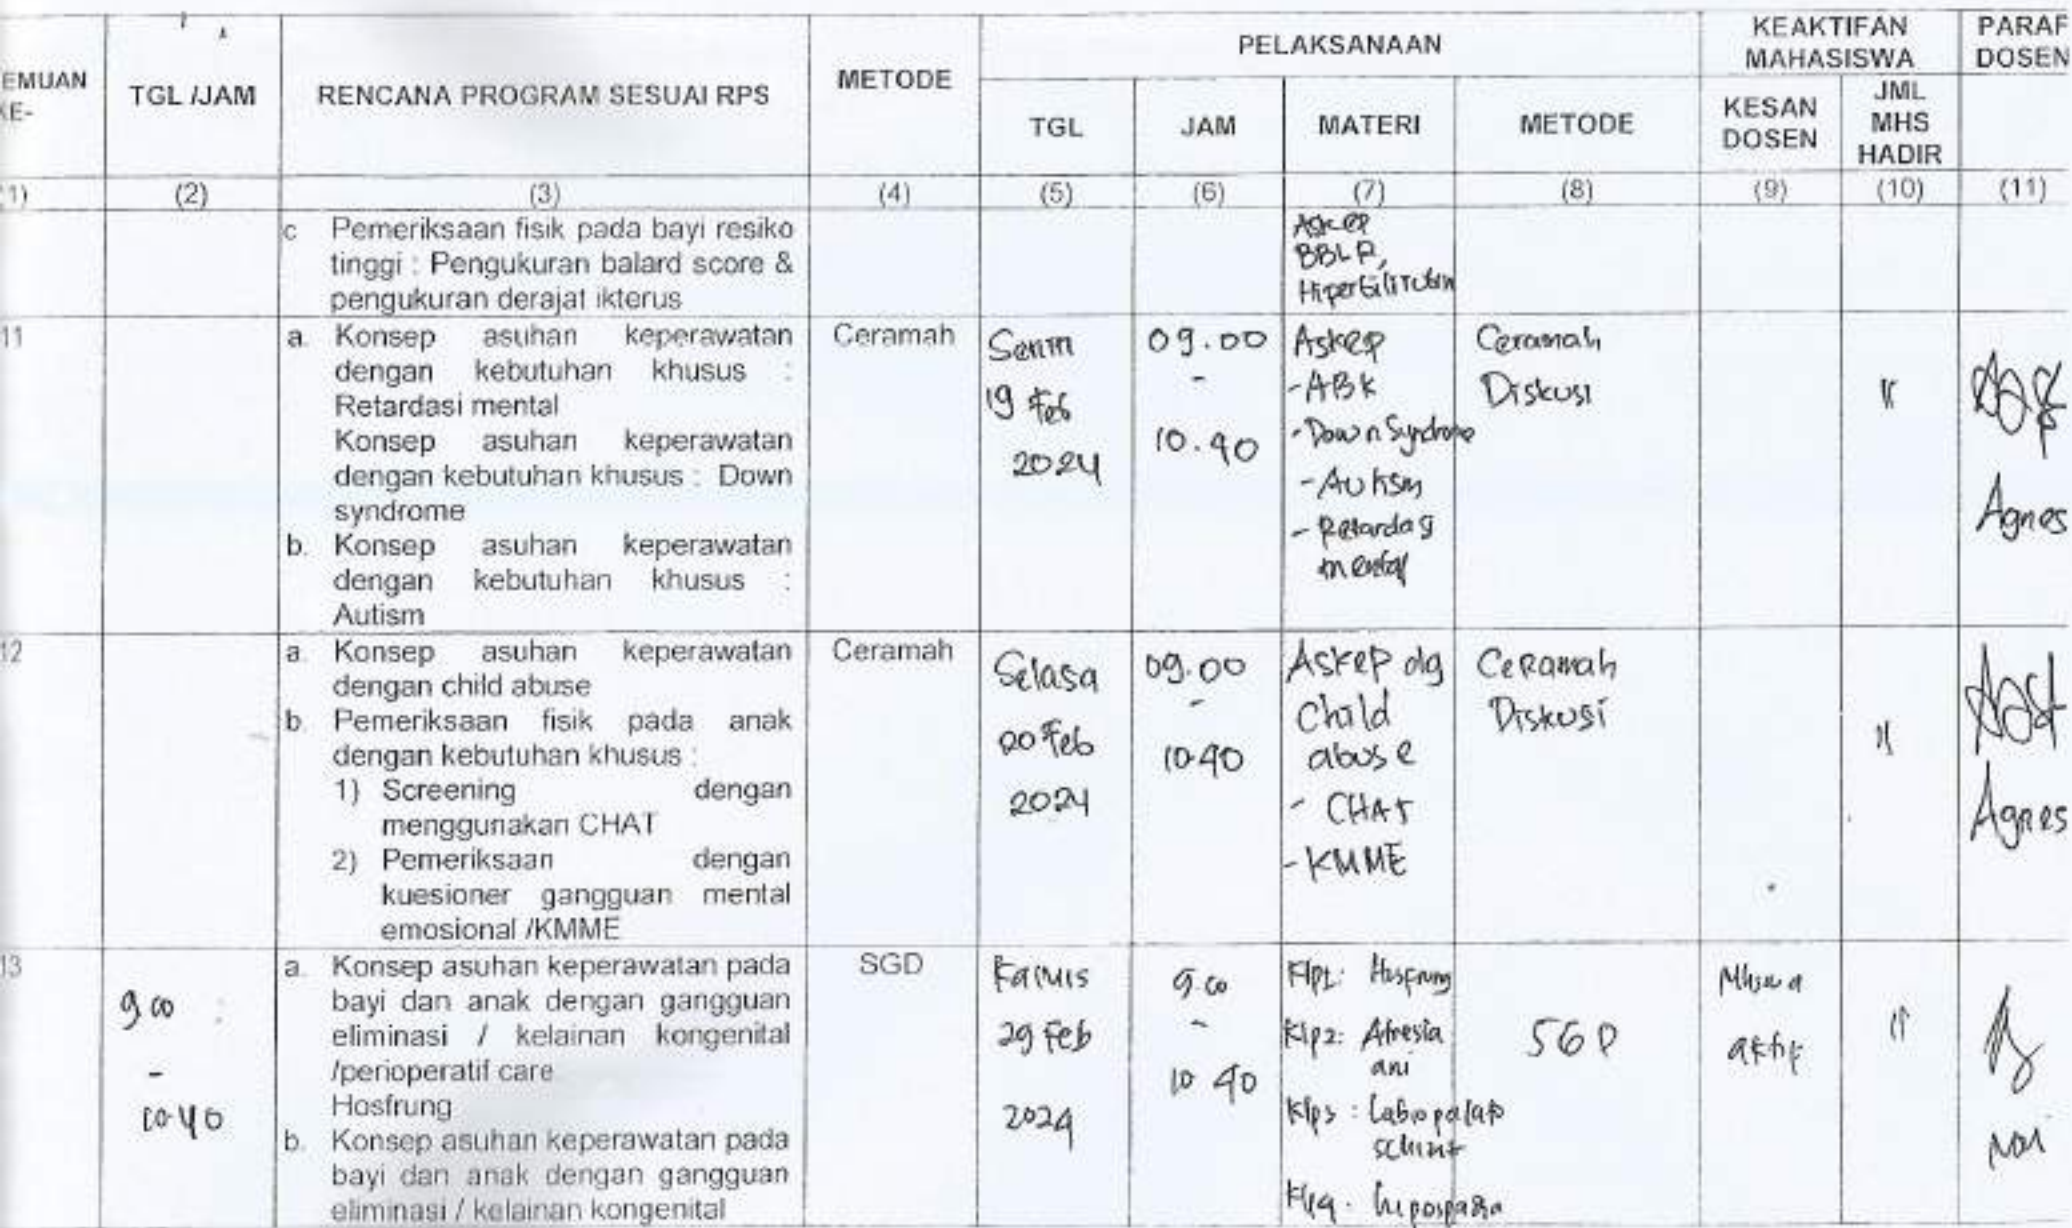 EMUAN KE-
TGL /JAM
RENCANA PROGRAM SESUAI RPS
METODE
PELAKSANAAN
KEAKTIFAN MAHASISWA
PARAF DOSEN
TGL
JAM
MATERI
METODE
KESAN DOSEN
JML MHS HADIR
1) (2) (3) (4) (5) (6) (7) (8) (9) (10) (11)
c Pemeriksaan fisik pada bayi resiko
tinggi : Pengukuran balard score &
pengukuran derajat ikterus
Askep
BBLR,
Hiperbilirubin
11
a. Konsep asuhan keperawatan
dengan kebutuhan khusus :
Retardasi mental
Konsep asuhan keperawatan
dengan kebutuhan khusus : Down
syndrome
b. Konsep asuhan keperawatan
dengan kebutuhan khusus :
Autism
Ceramah
Senin
19 Feb
2024
09.00
-
10.40
Askep
- ABK
- Down Syndrome
- Autism
- Retardasi
mental
Ceramah
Diskusi
Agnes
12
a. Konsep asuhan keperawatan
dengan child abuse
b. Pemeriksaan fisik pada anak
dengan kebutuhan khusus :
1) Screening dengan
menggunakan CHAT
2) Pemeriksaan dengan
kuesioner gangguan mental
emosional /KMME
Ceramah
Selasa
20 Feb
2024
09.00
-
10.40
Askep dg
Child
abuse
- CHAT
- KMME
Ceramah
Diskusi
Agnes
13
9.00
-
10.40
a. Konsep asuhan keperawatan pada
bayi dan anak dengan gangguan
eliminasi / kelainan kongenital
/perioperatif care
Hosfrung
b. Konsep asuhan keperawatan pada
bayi dan anak dengan gangguan
eliminasi / kelainan kongenital
SGD
Kamis
29 Feb
2024
9.00
-
10.40
Klp1: Hosfrung
Klp2: Atresia
ani
Klp3 : Labiopalato
Klp4. hipospadia
SGD
aktif